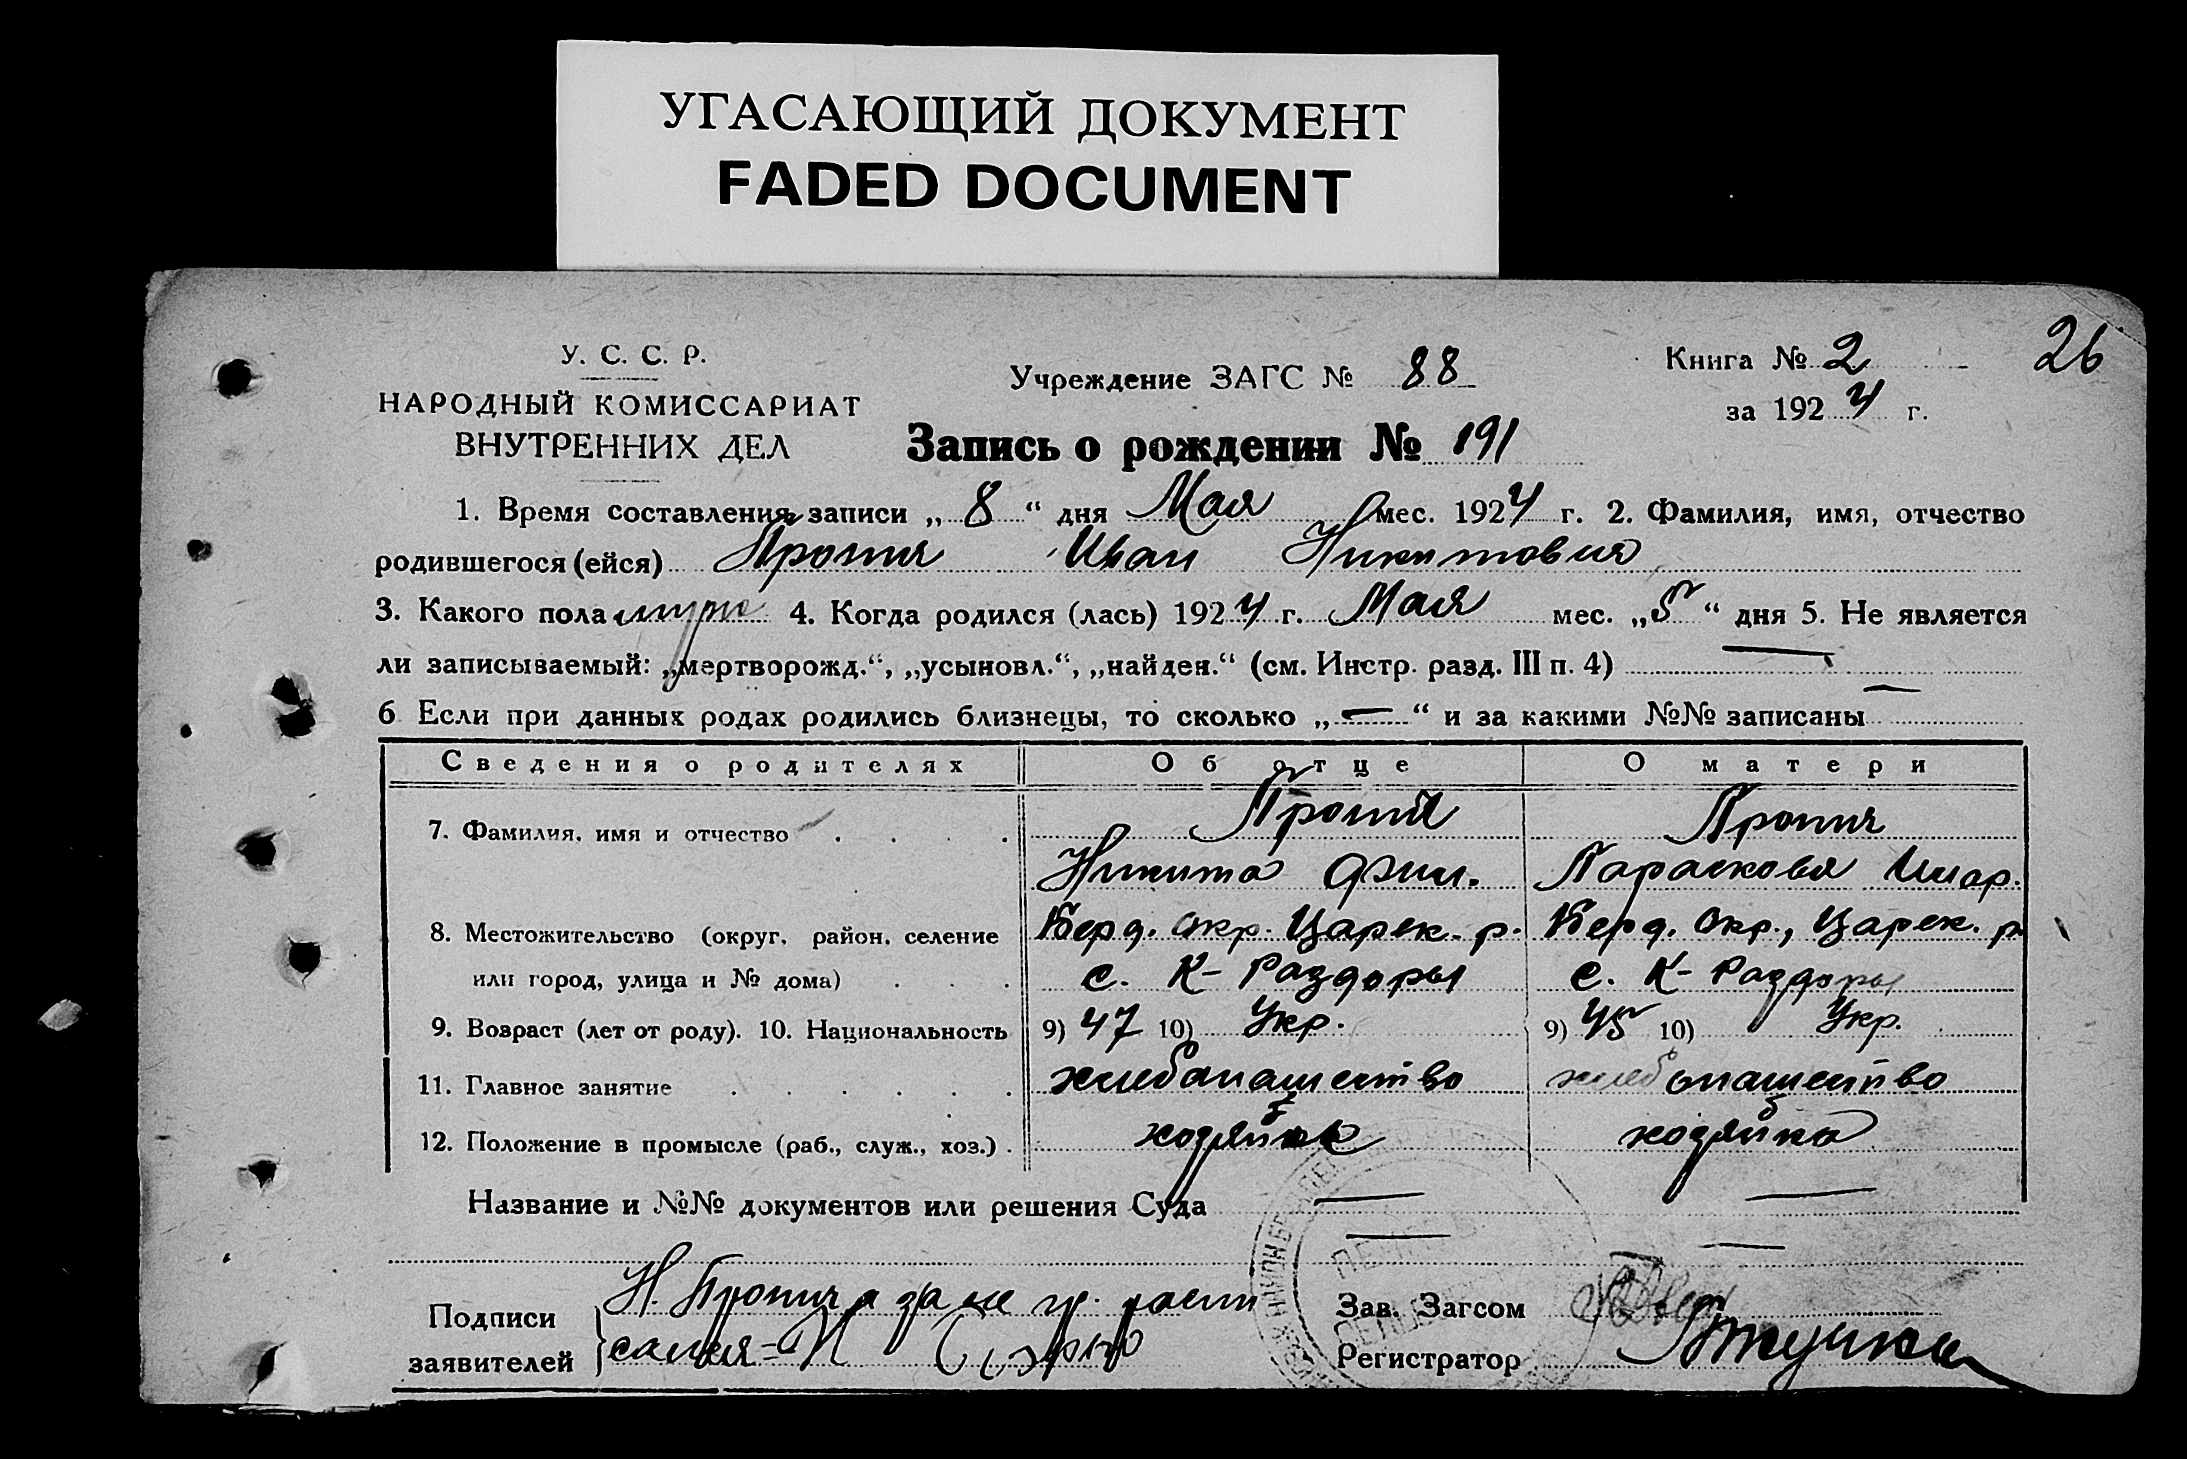 УГАСАЮЩИЙ ДОКУМЕНТ
FADED DOCUMENT
26
У. С. С. Р.
НАРОДНЫЙ КОМИССАРИАТ
ВНУТРЕННИХ ДЕЛ
Учреждение ЗАГС № 88
Книга № 2
за 1924 г.
Запись о рождении № 191
1. Время составления записи „ 8 “ дня Мая мес. 1924 г. 2. Фамилия, имя, отчество
родившегося (ейся) Иван Никитович
3. Какого пола муж 4. Когда родился (лась) 1924 г. Мая мес. „ 5 “ дня 5. Не является
ли записываемый: „мертворожд.“, „усыновл.“, „найден.“ (см. Инстр. разд. III п. 4) —
6 Если при данных родах родились близнецы, то сколько „ — “ и за какими №№ записаны —
Сведения о родителях Об отце О матери
7. Фамилия, имя и отчество
Никита Фил. Парасковья
8. Местожительство (округ, район, селение Берд. окр. Царек. р. Берд. Окр., Царек. р.
или город, улица и № дома) с. К-Раздоры с. К-Раздоры
9. Возраст (лет от роду). 10. Национальность 9) 47 10) Укр. 9) 45 10) Укр.
11. Главное занятие хлебопашество хлебопашество
12. Положение в промысле (раб., служ., хоз.) хозяйка
Название и №№ документов или решения Суда — —
— —
Подписи
заявителей
Н.
Зав. Загсом
Регистратор